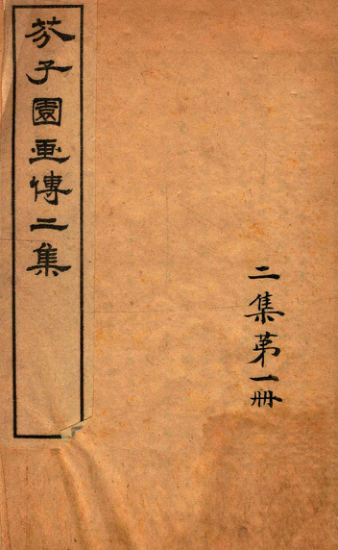 芥子園画傳二集
二集第一册